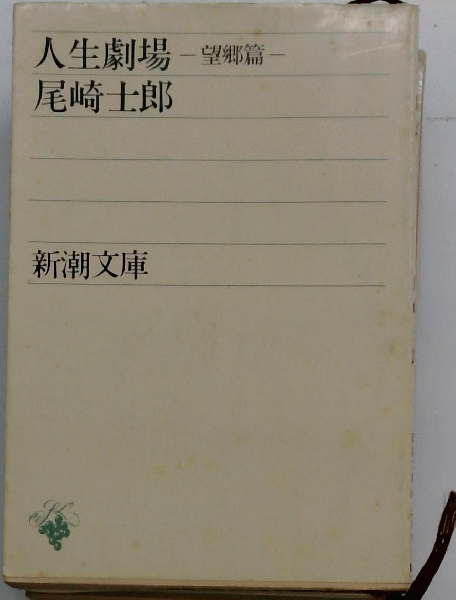 人生劇場 ―望郷篇―
尾崎士郎
新潮文庫